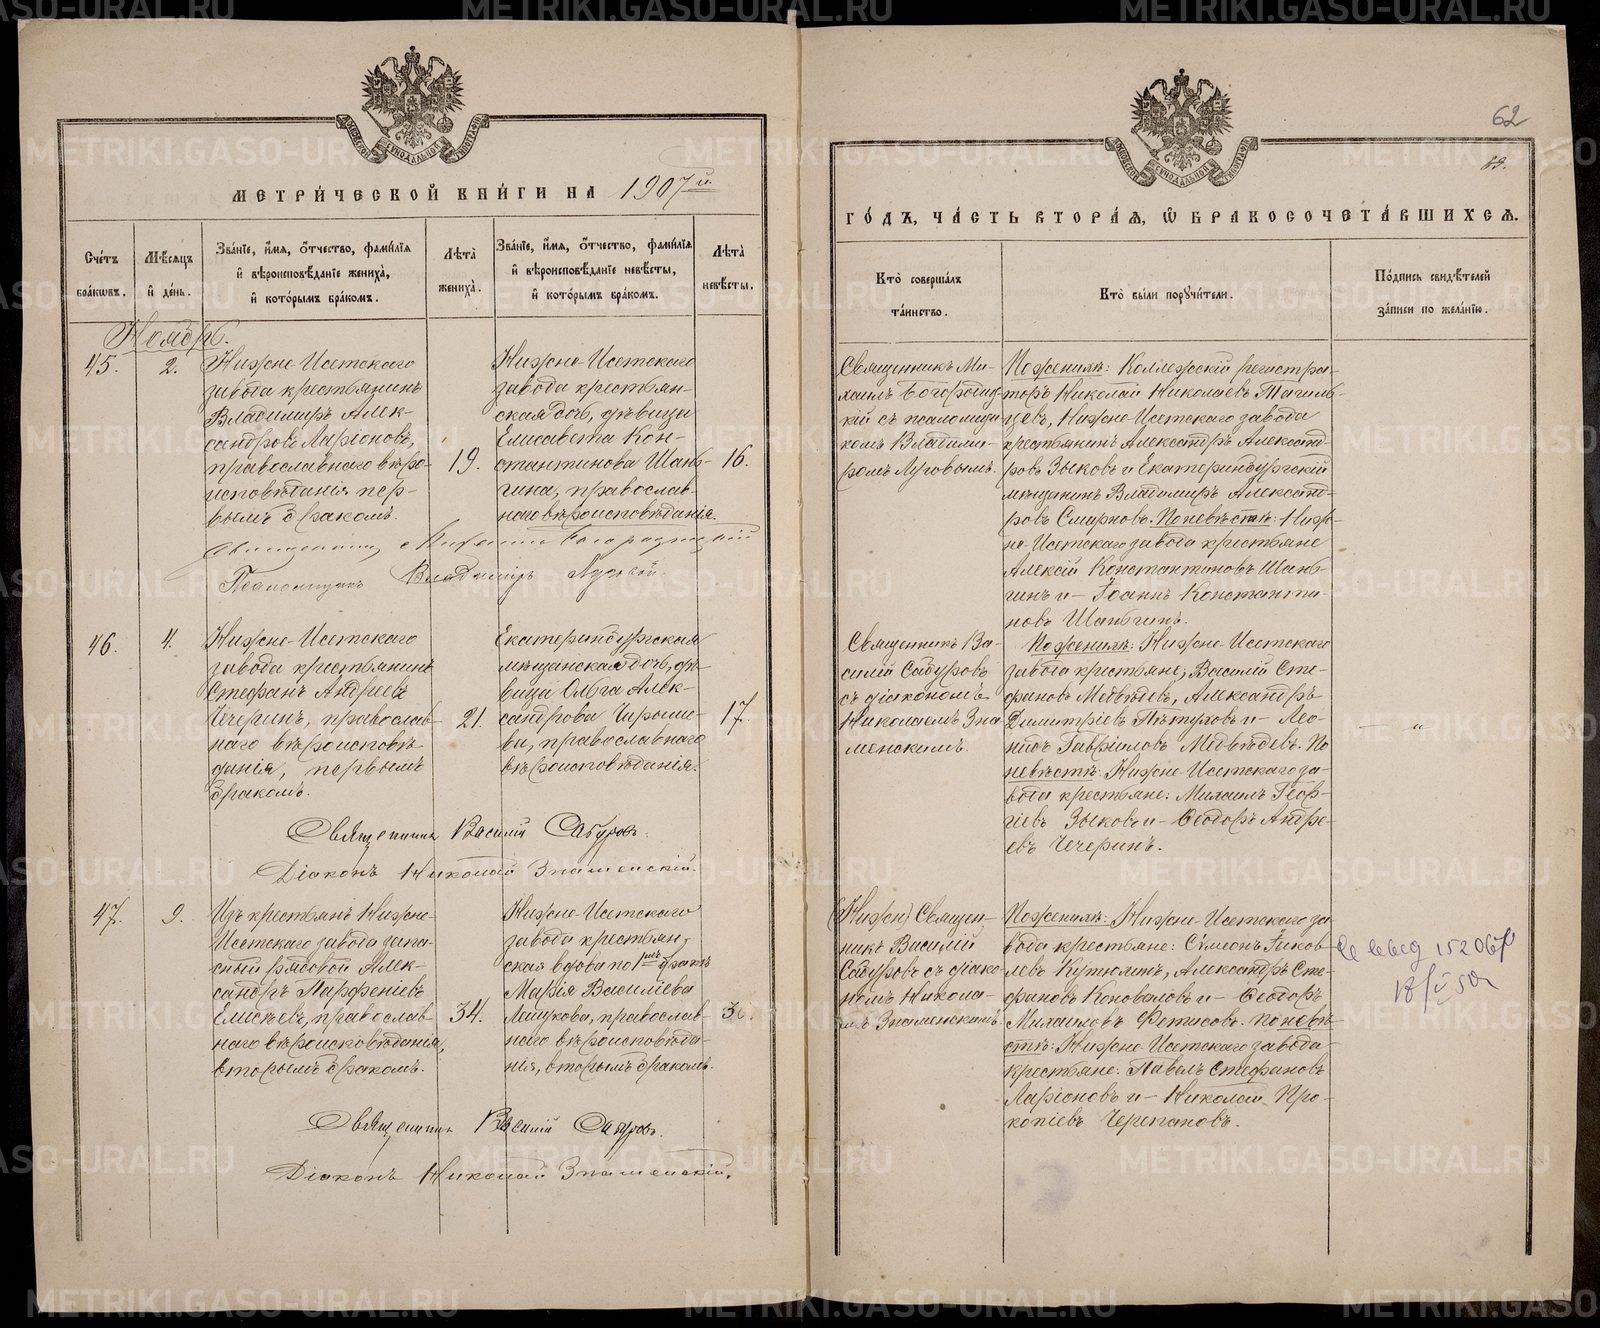 МЕТРИ́ЧЕСКОЙ КНИ́ГИ НА 1907 й.
Сче́тъ бра́ковъ.
Мѣ́сяцъ и҆ де́нь.
Зва́нїе, и҆́мя, ѻ҆́тчество, фами́лїя
и҆ вѣроисповѣ́данїе жениха̀,
и҆ кото́рымъ бра́комъ.
Лѣ́та̀ жениха̀.
Зва́нїе, и҆́мя, ѻ҆́тчество, фами́лїя
и҆ вѣроисповѣ́данїе невѣ́сты,
и҆ кото́рымъ бра́комъ.
Лѣ́та̀ невѣ́сты.
Ноябрь.
45.
2.
Нижне-Исетскаго
завода крестьянинъ
Владимиръ Алек-
сандровъ Ларіоновъ,
православнаго вѣро-
исповѣданія, пер-
вымъ бракомъ.
19.
Нижне-Исетскаго
завода крестьян-
ская дочь, дѣвица
Елисавета Кон-
стантинова Шань-
гина, православ-
наго вѣроисповѣданія.
16.
Священникъ Михаилъ Богородицкій
Псаломщикъ Владимиръ Луговой.
46.
4.
Нижне-Исетскаго
завода крестьянинъ
Стефанъ Андреевъ
Чечеринъ, православ-
наго вѣроисповѣ-
данія, первымъ
бракомъ.
21.
Екатеринбургская
мѣщанская дочь, дѣ-
вица Ольга Алек-
сандрова
ва, православнаго
вѣроисповѣданія.
17.
Священникъ Василій Сабуровъ.
Діаконъ Николай Знаменскій.
47.
9.
Изъ крестьянъ Нижне-
Исетскаго завода запа-
сный рядовой Алек-
сандръ Парфеніевъ
Елисѣевъ, православ-
наго вѣроисповѣданія,
вторымъ бракомъ.
34.
Нижне-Исетскаго
завода крестьян-
ская вдова по 1мъ бракѣ
Марія Василіева
православ-
наго вѣроисповѣда-
нія, вторымъ бракомъ.
Священникъ Василій Сабуровъ.
Діаконъ Николай Знаменскій.
62
ГО́ДЪ, ЧА́СТЬ ВТОРА́Я, Ѡ҆ БРАКОСОЧЕТА́ВШИХСЯ.
Кто̀ соверша́лъ
та́инство.
Кто̀ бы́ли порꙋчи́тели.
По́дпись свидѣ́телей
за́писи по жела́нїю.
Священникъ Ми-
хаилъ Богородиц-
кій съ псаломщи-
комъ Владими-
ромъ Луговымъ.
По женихѣ: Коллежскій регистра-
торъ Николай Николаевъ Тагиль-
цевъ, Нижне-Исетскаго завода
крестьянинъ Александръ Александ-
ровъ Зыковъ и Екатеринбургскій
мѣщанинъ Владимиръ Александ-
ровъ Смирновъ. По невѣстѣ: Ниж-
не-Исетскаго завода крестьяне
Алексій Константиновъ Шань-
гинъ и Іоаннъ Константи-
новъ Шаньгинъ.
Священникъ Ва-
силій Сабуровъ
съ діакономъ
Николаемъ Зна-
менскимъ.
По женихѣ: Нижне-Исетскаго
завода крестьяне, Василій Сте-
фановъ Медвѣдевъ, Александръ
Димитріевъ Пѣтуховъ и Лео-
нидъ Гавріиловъ Медвѣдевъ. По
невѣстѣ: Нижне-Исетскаго за-
вода крестьяне: Михаилъ Геор-
гіевъ Зыковъ и Ѳеодоръ Андре-
евъ Чечеринъ.
Священ-
никъ Василій
Сабуровъ съ діако-
номъ Никола-
емъ Знаменскимъ
По женихѣ: Нижне-Исетскаго за-
вода крестьяне: Симеонъ Іаков-
левъ Кутюхинъ, Александръ Сте-
фановъ Коноваловъ и Ѳеодоръ
Михаиловъ Фетисовъ. По невѣ-
стѣ: Нижне-Исетскаго завода
крестьяне: Павелъ Стефановъ
Ларіоновъ и Николай Про-
копіевъ Черепановъ.
METRIKI.GASO-URAL.RU